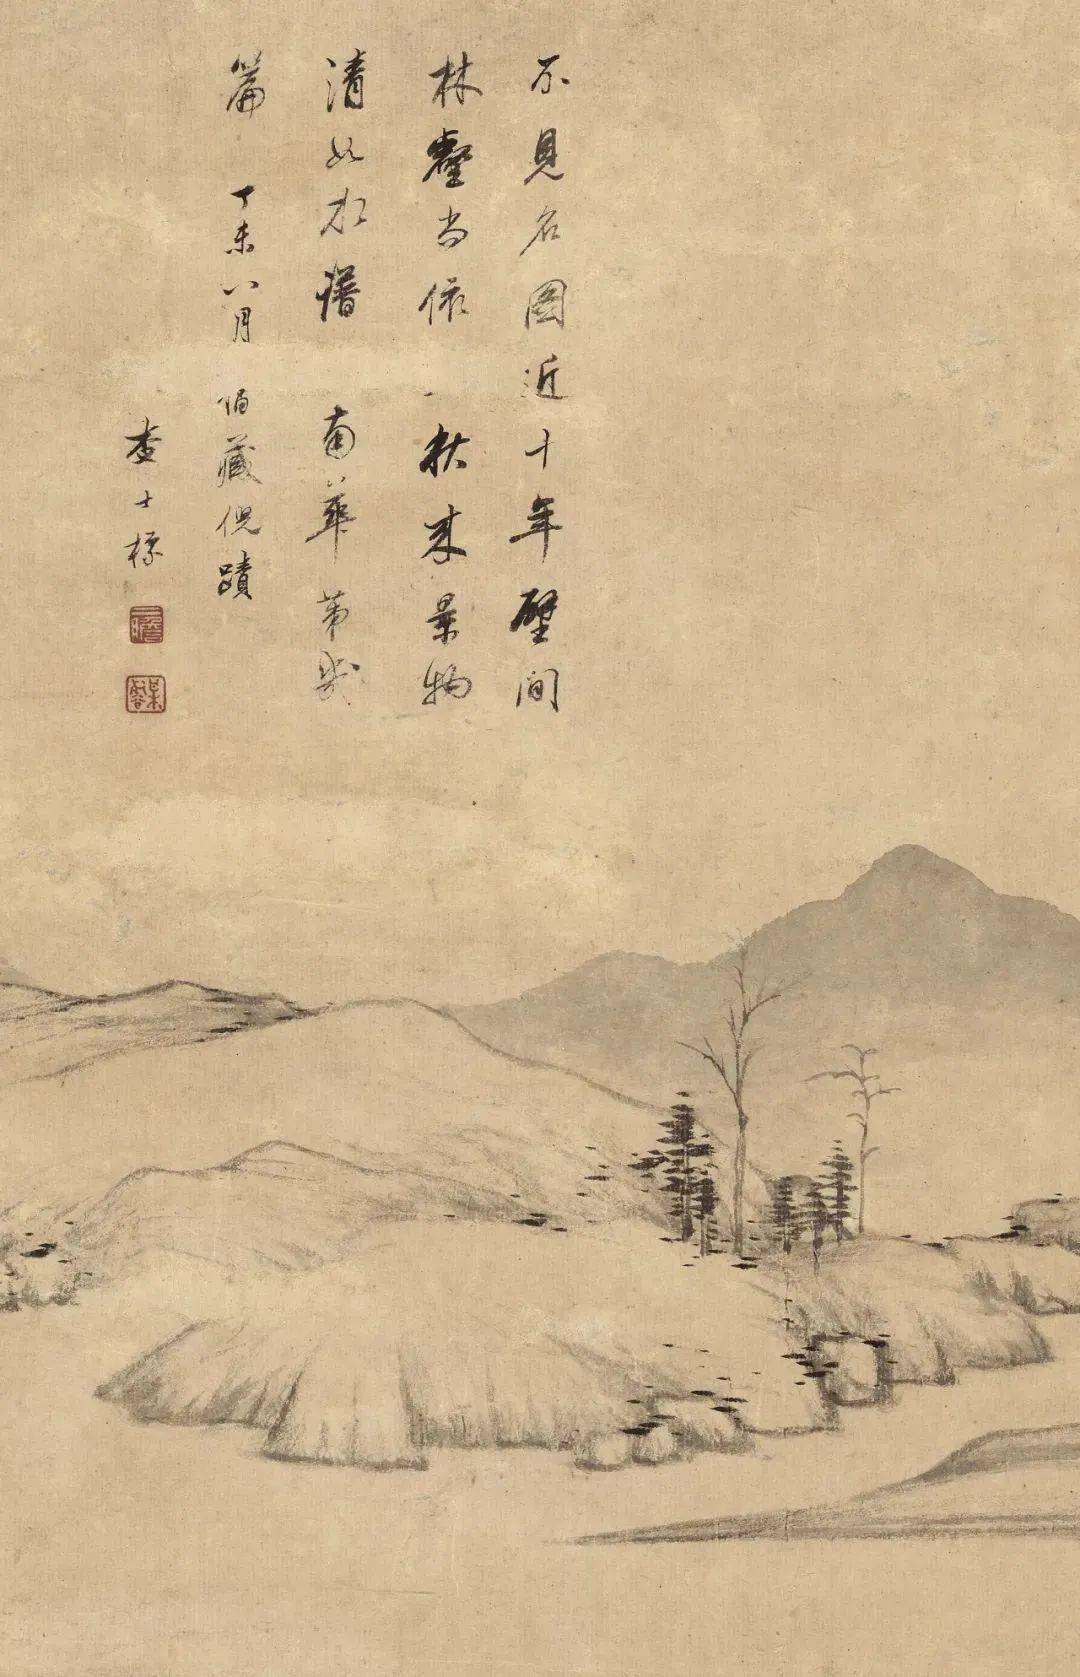 不見名圖近十年壁間
林壑尚依 秋來景物
清如水譜 南華第幾
篇 丁未八月 藏倪蹟
查士標
二瞻